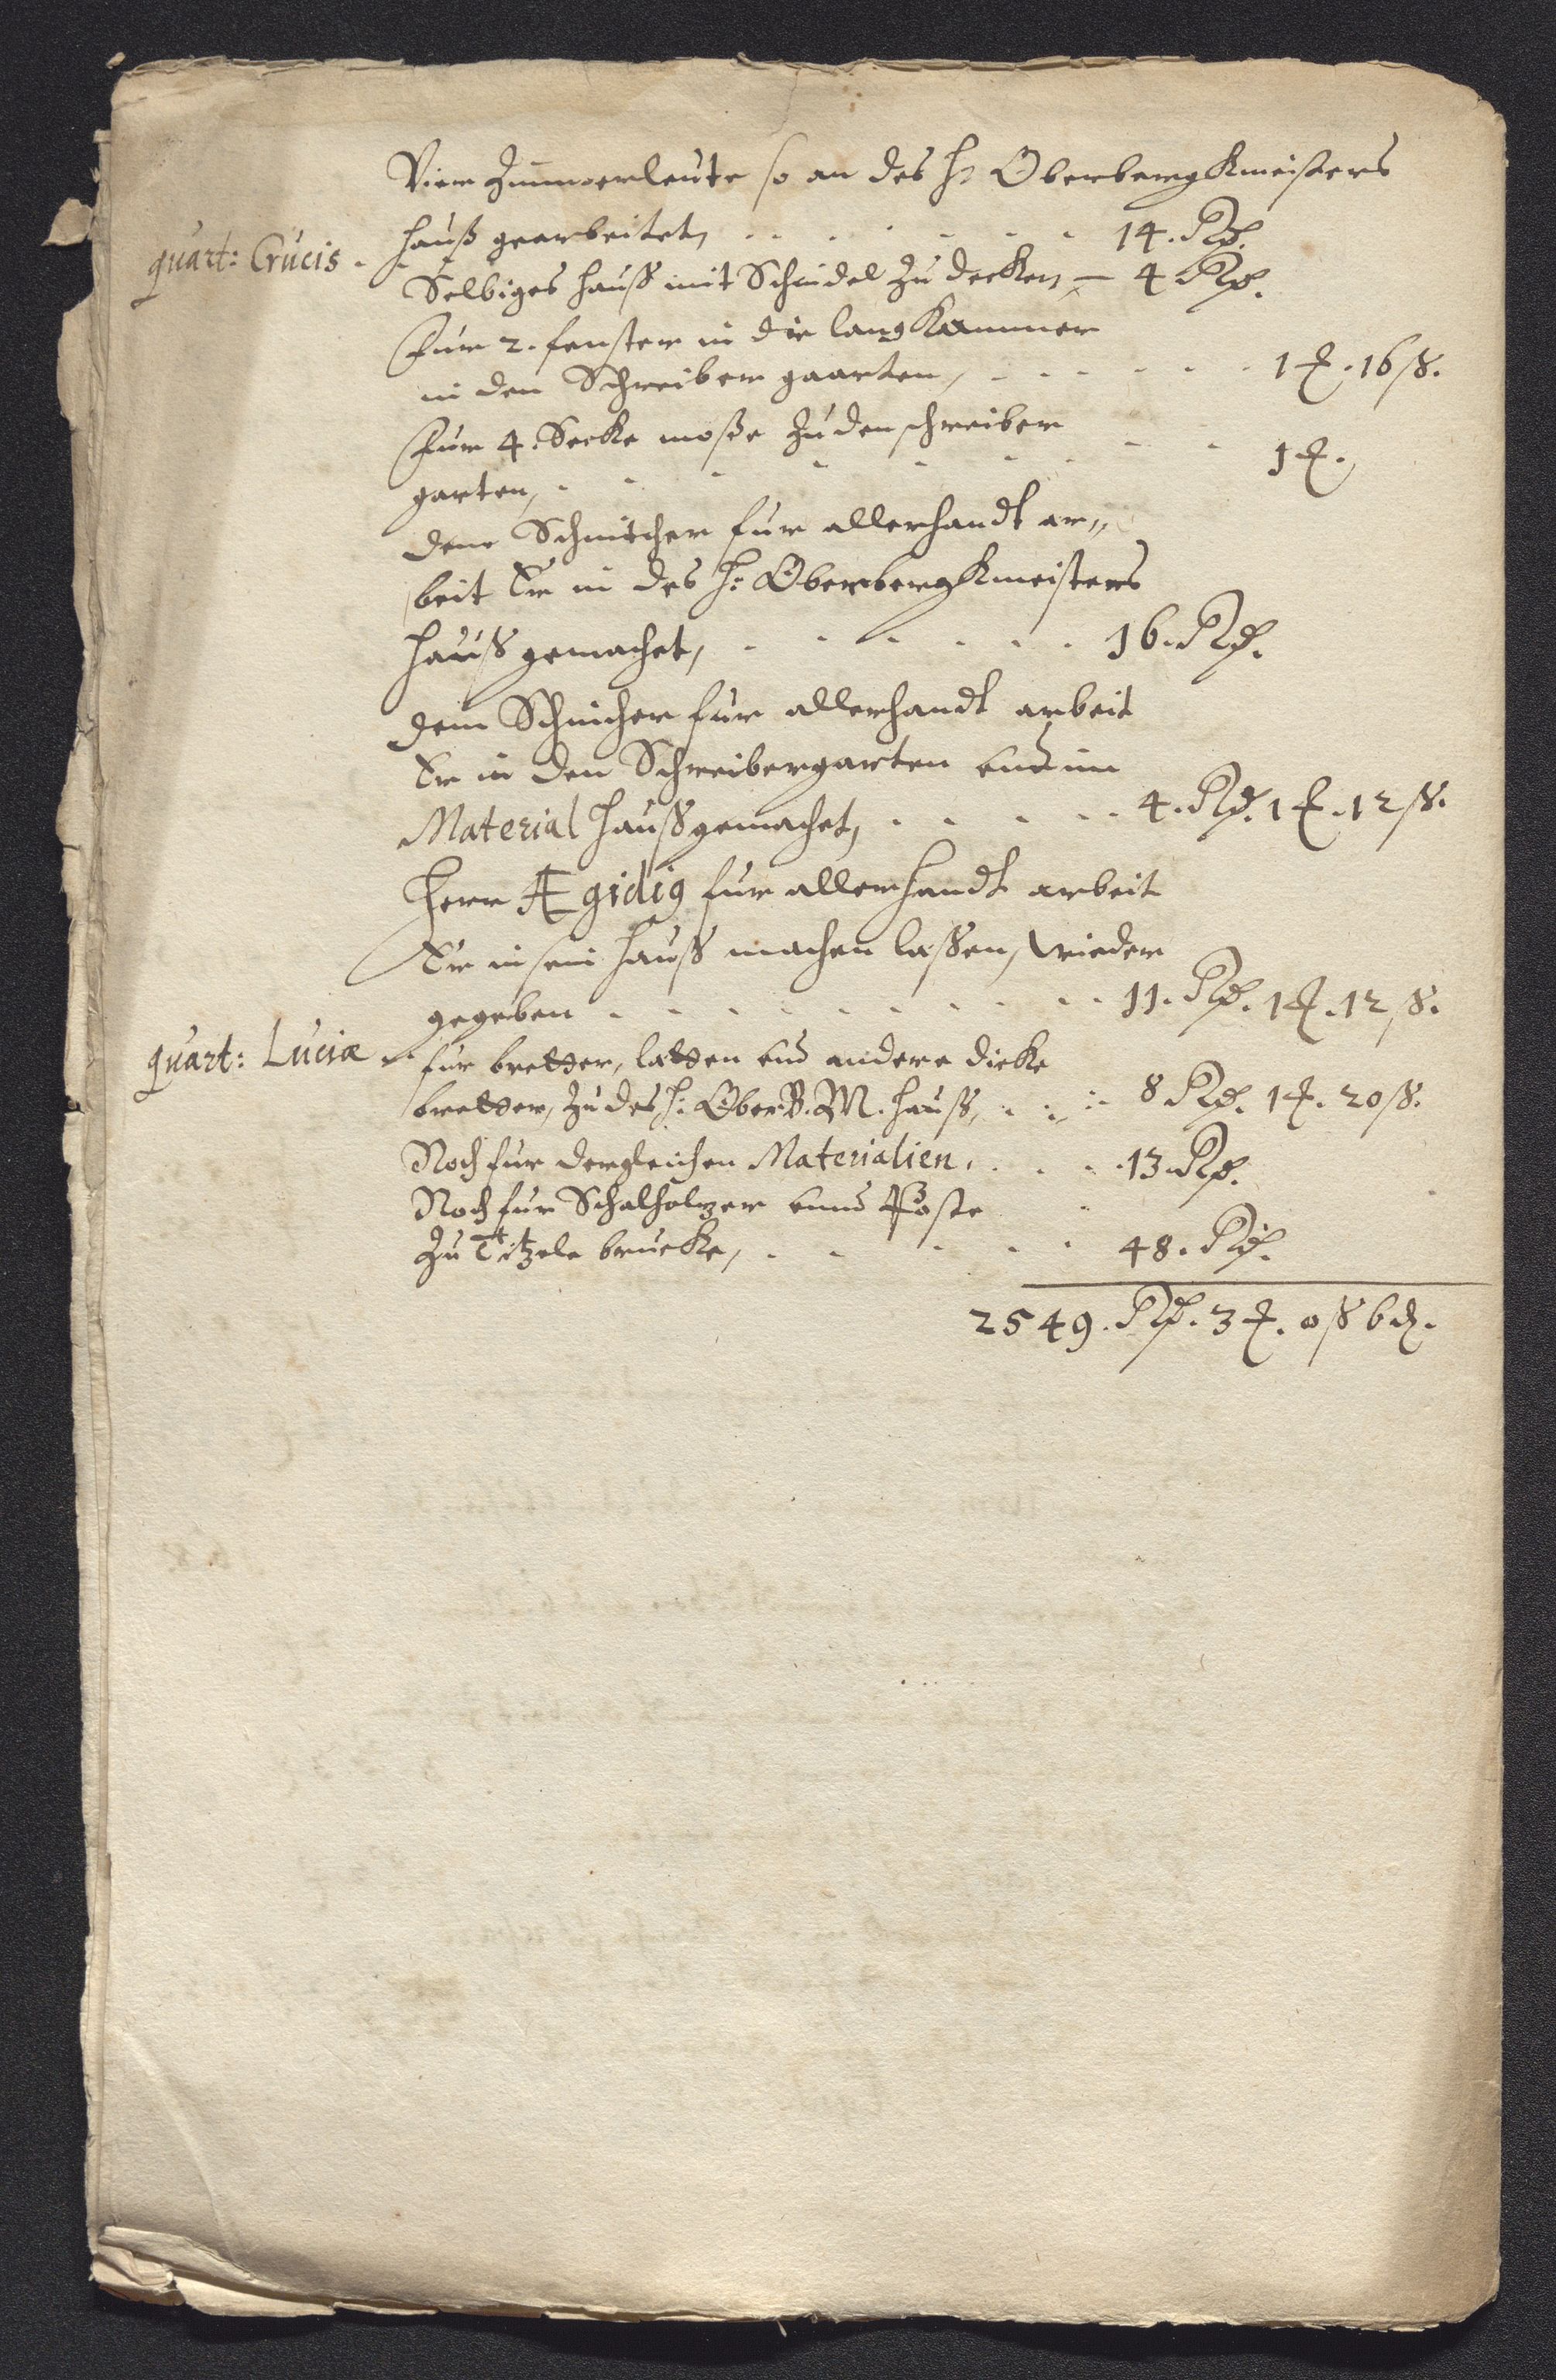 Vier Zimmerleute so an des H: OberbergKmeisters
quart: Crucis. hauß gearbeitet, 14. Rd.
Selbiges hauß mit Schindel zu decken, — 4 Rd.
Für 2. fenster in die lang Kammer
in den Schreiber gaarten, 1 ℔. 16 ß.
Für 4. Secke moße zu den schreiber
garten, 1 ℔.
dem Schnitcher für allerhandt ar„
beit Er in des H: OberbergKmeisters
hauß gemachet, 16. Rd.
dem Schnicher für allerhandt arbeit
Er in den Schreibergarten und im
Material hauß gemachet, 4. Rd. 1 ℔. 12 ß.
Herr Ægidig für allerhandt arbeit
Er in sein hauß machen laßen, wieder
gegeben 11. Rd. 1 ℔. 12 ß.
quart: Luciæ für bretter, latten und andere dicke
bretter, zu des H: Ober B. M. hauß, 8 Rd. 1 ℔. 20 ß.
Noch für dergleichen Materialien. 13. Rd.
Noch für Schalholzer unnd Poste
zu Titzele brucke, 48. Rd.
2549. Rd. 3 ℔. 0 ß 6 ₰.